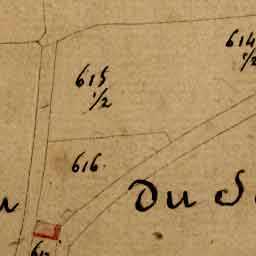 614
1/2
615
1/2
616
Du S